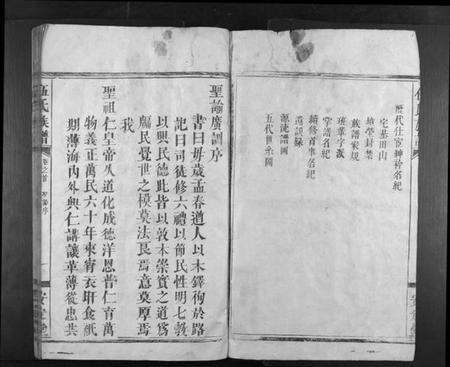 歷代仕宦紳衿名紀
宅基田山
墳塋封禁
族譜家規
班輩字派
掌譜名紀
續修首事名紀
遺訓錄
源流譜圖
五代世系圖
聖諭廣訓序
書曰每歲孟春遒人以木鐸徇於路
記曰司徒修六禮以節民性明七教
以興民德此皆以敦本崇實之道為
牖民覺世之模莫法良焉意莫厚焉
我
聖祖仁皇帝久道化成德洋恩普仁育萬
物義正萬民六十年來宵衣旰食祗
期薄海內外興仁講讓革薄從忠共
伍氏族譜
卷之首